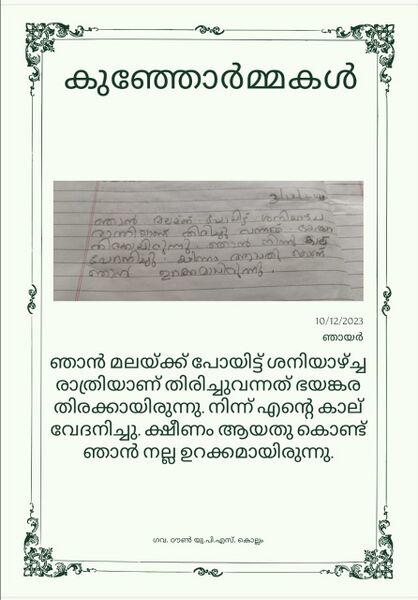 കുഞ്ഞോർമ്മകൾ
ഞാൻ മലക്ക് പോയിട്ട് ശനിയാഴ്ച
രാത്രിയാണ് തിരിച്ചു വന്നത്
തിരക്കായിരുന്നു. ഞാൻ നിന്ന്
വേദനിച്ചു.
ഞാൻ ഉറക്കമായിരുന്നു.
10/12/2023
ഞായർ
ഞാൻ മലയ്ക്ക് പോയിട്ട് ശനിയാഴ്ച്ച
രാത്രിയാണ് തിരിച്ചുവന്നത് ഭയങ്കര
തിരക്കായിരുന്നു. നിന്ന് എന്റെ കാല്
വേദനിച്ചു. ക്ഷീണം ആയതു കൊണ്ട്
ഞാൻ നല്ല ഉറക്കമായിരുന്നു.
ഗവ. ടൗൺ യു.പി.എസ്. കൊല്ലം